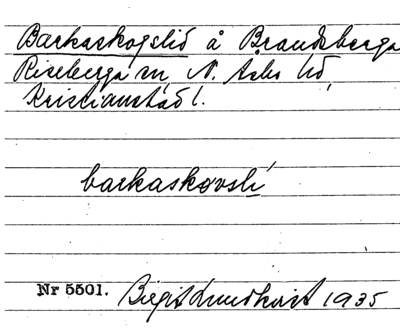 Barkaskogslid å Brandsberga
Riseberga sn, N. Åsbo hd,
Kristianstad l.
barkaskovslí
Nr 5501. Birgit Lundkvist 1935